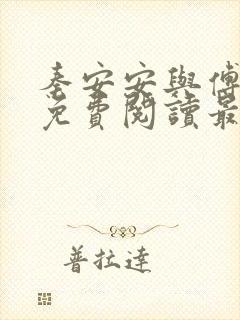 秦安安與傅
免費閱讀最
普拉達